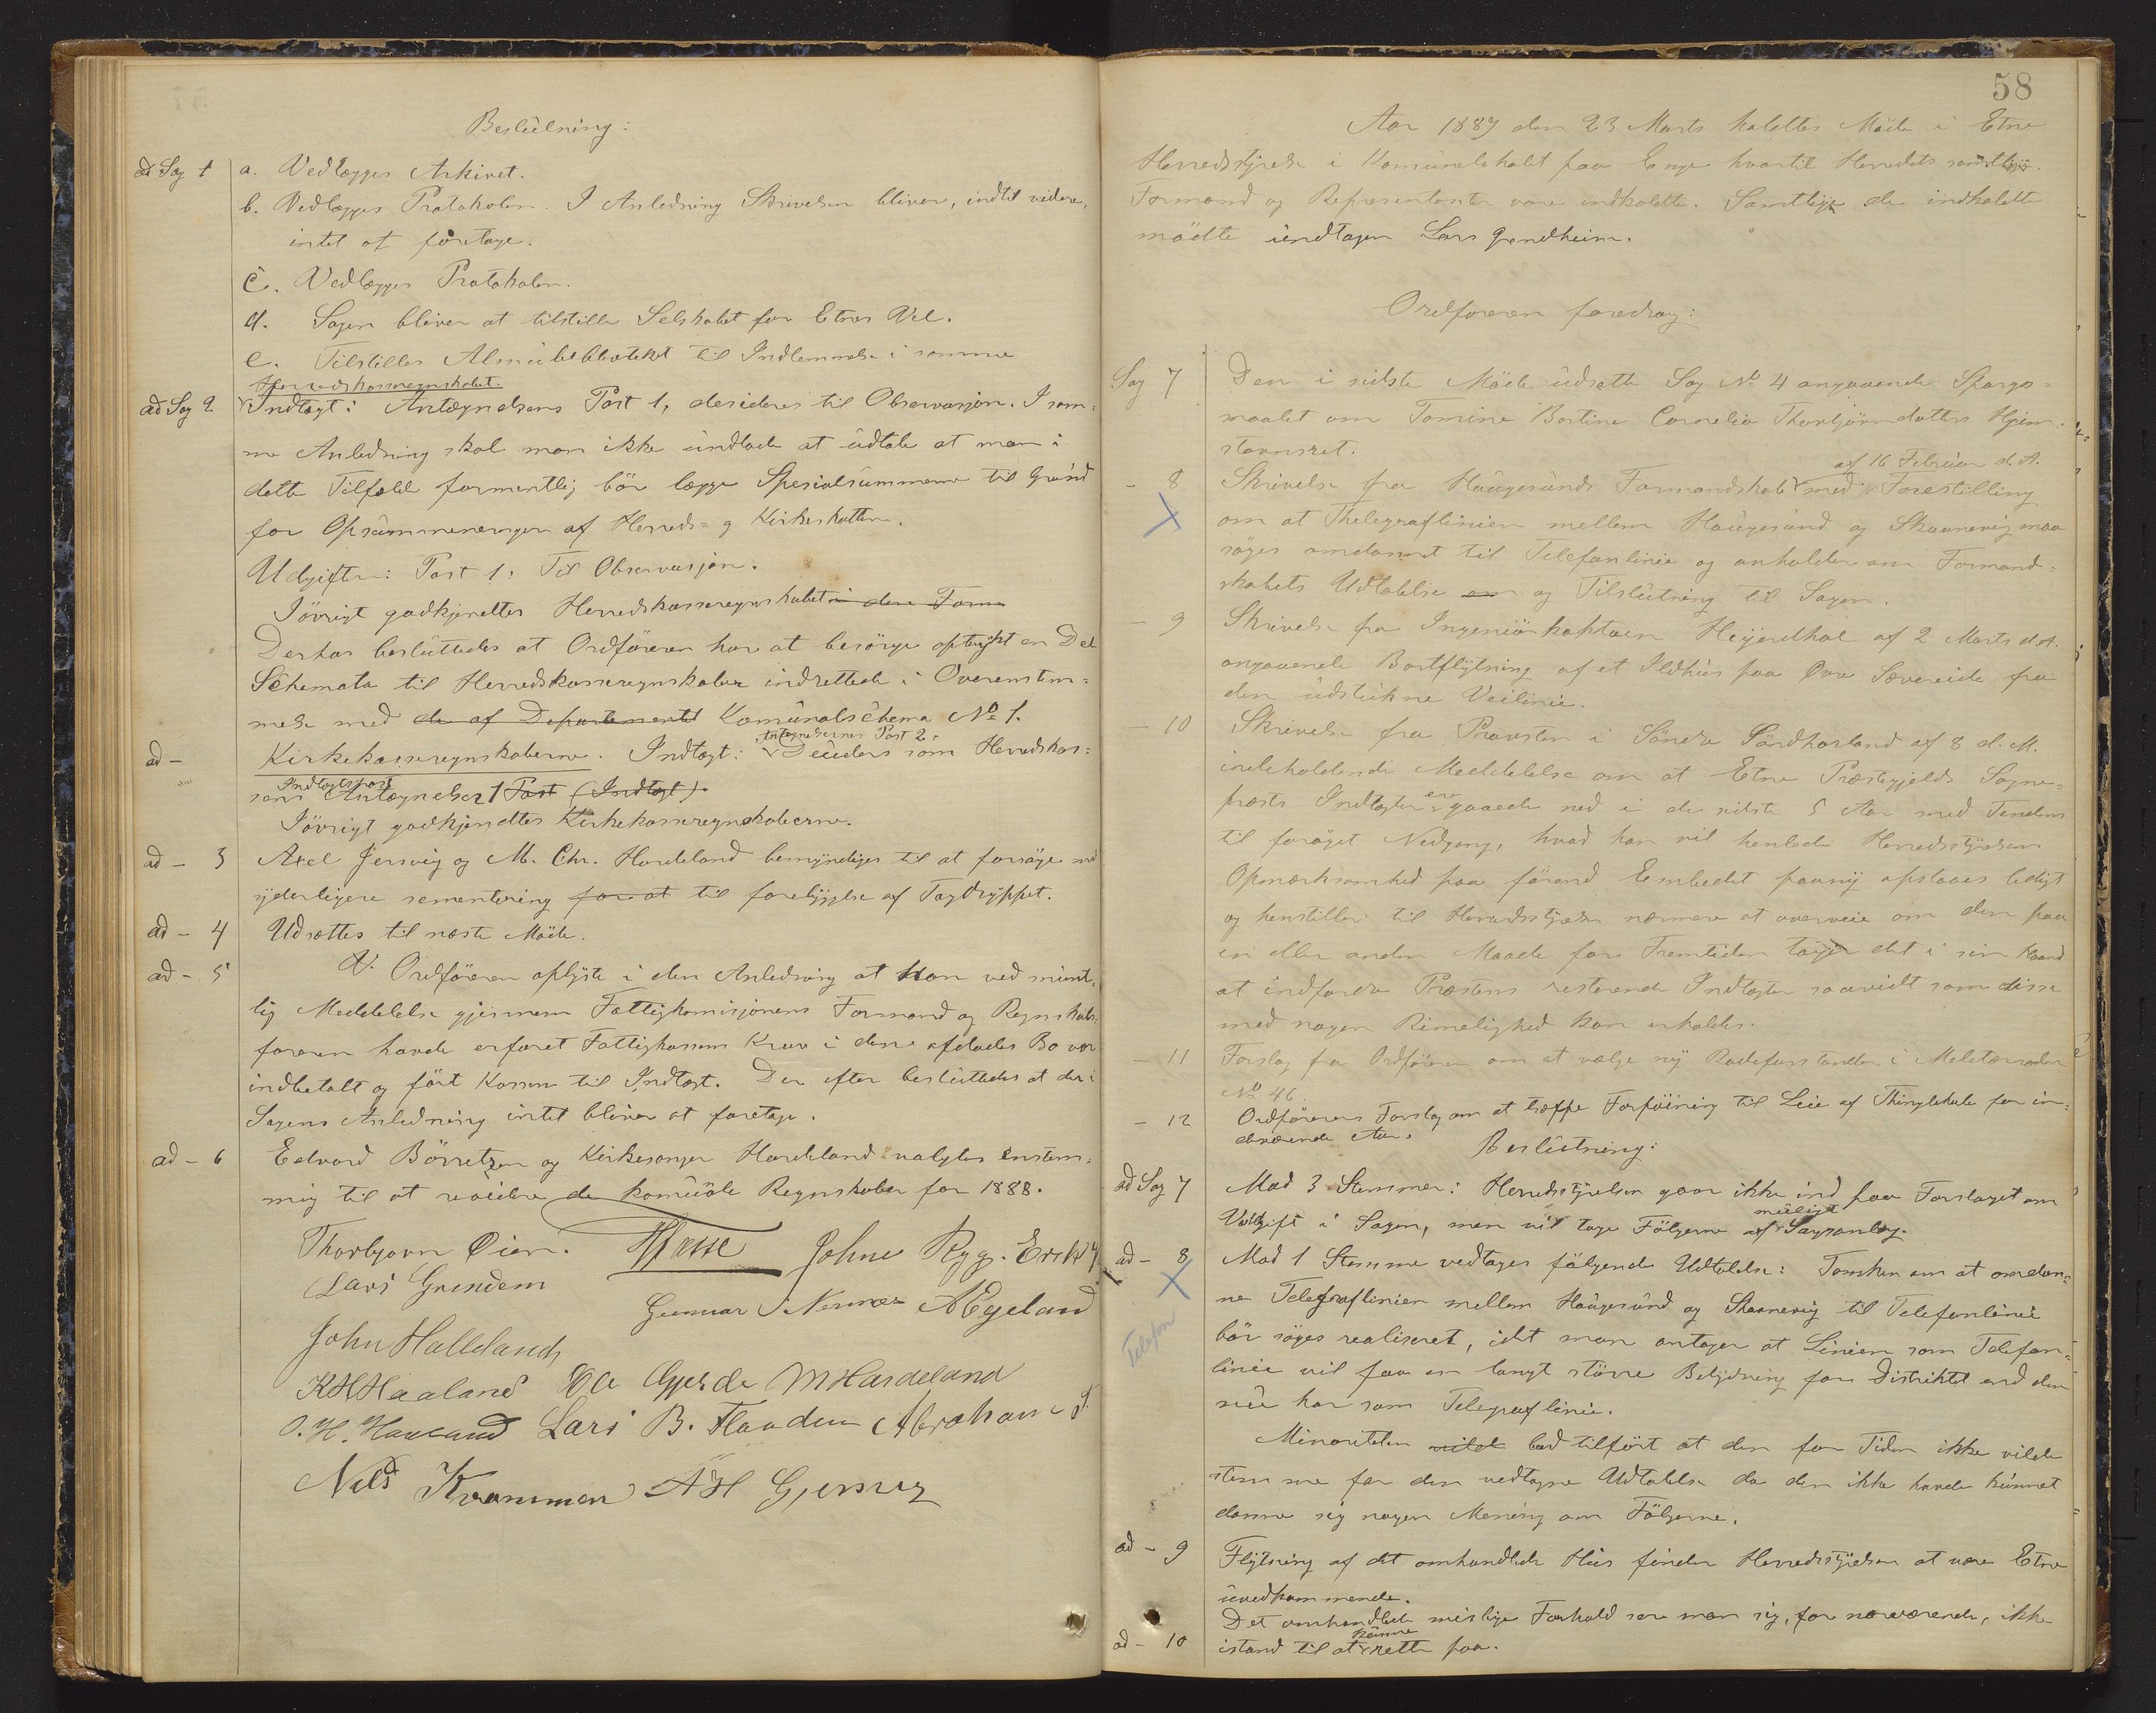 Beslutning:
ad Sag 1 a. Vedlægges Arkivet.
b. Vedlægges Protokolen. I Anledning Skrivelsen bliver, indtil videre,
intet at foretage.
c. Vedlægges Protokolen.
d. Sagen bliver at tilstille Selskabet for Etnes Vel.
e. Tilstilles Almubibliotheket til Indlemmelse i samme
Herredskasseregnskabet.
ad Sag 2 Indtægt: Antegnelsens Post 1, desideres til Observasjon. I sam-
me Anledning skal man ikke undlade at udtale at man i
dette Tilfælde formentlig bör lægge Spesialsummerne til Grund
for Opsummeneringen af Herreds- og Kirkeskatten.
Udgifter: Post 1: Til Observasjon.
Iövrigt godkjendtes Herredskasseregnskabet i den Form
Derhos besluttedes at Ordföreren har at besörge optrykt en Del
Schemata til Herredskasseregnskaber indrettede i Overenstem-
melse med de af Departementet Komunalschema No 1.
ad - Kirkekasseregnskaberne. Indtægt: Antegnelsernes Post 2. Desideres som Herredskas-
sens Indtægtspost Antegnelser 1 Post (Indtægt).
Iövrigt godkjendtes Kirkekasseregnskaberne.
ad - 3 Axel Gjersvig og M. Chr. Hardeland bemyndiges til at forsöge med
yderligere sementering for at til forebyggelse af Tagdryppet.
ad - 4 Udsættes til næste Möde.
ad - 5 V. Ordföreren oplyste i den Anledning at han ved munt-
lig Meddelelse gjennem Fattigkomisjonens Formand og Regnskabs-
foreren havde erfaret Fattigkassens Krav i denne afdödes Bo var
indbetalt og fört Kassen til Indtægt. Der efter besluttedes at der i
Sagens Anledning intet bliver at foretage.
ad - 6 Edvard Börretzen og Kirkesanger Hardeland valgtes enstem-
mig til at revidere de komunale Regnskaber for 1888.
Thorbjørn Øien. HFasse Johne Rygg. Erik
Lars Grindem Gunnar J Nernæs AEgeland
John Halleland
KHHaaland Ole Gjerde MHardeland
O. H. Haaland Lars B. Flaaden Abraham
Nils Krammen AH Gjersvig
58
Aar 1889 den 23 Marts holdtes Möde i Etne
Herredstyrelse i Komunelokalet paa Enge hvortil Herredets samtlige
Formænd og Representanter vare indkaldte. Samtlige de indkaldte
mödte undtagen Lars Grindheim.
Ordføreren foredrog:
Sag 7 Den i sidste Möde udsatte Sag No 4 angaaende Sporgs-
maalet om Tomine Bertine Cornelia Thorbjörnsdatters Hjem-
stavnsret.
- 8 Skrivelse fra Haugesunds Formandskab af 16 Februar d. A. med Forestilling
om at Thelegraflinien mellem Haugesund og Skaanevig maa
söges omdannet til Telefonlinie og anholder om Formand-
skabets Udtalelse om og Tilslutning til Sagen.
- 9 Skrivelse fra Ingeniörkaptain Heyerdhal af 2 Marts d. A.
angaaende Bortflytning af et Ildhus paa Övre Sævereide fra
den udstukne Veilinie.
- 10 Skrivelse fra Provsten i Söndre Söndhorland af 8 d. M.
indeholdende Meddelelse om at Etne Præstegjelds Sogne-
præsts Indtægter er gaaede ned i de sidste 5 Aar med Tendens
til foröget Nedgang, hvad han vil henlede Herredsstyrelsens
Opmærksomhed paa förend Embedet paany opslaaes ledigt
og henstiller til Herredsstyrelsen nærmere at overveie om den paa
en eller anden Maade for Fremtiden tager det i sin Haand
at indfordre Præstens resterende Indtægter saavidt som disse
med nogen Rimelighed kan erholdes.
- 11 Forslag fra Ordföreren om at vælge ny Rodeforstander i
No 46.
- 12 Ordförerens Forslag om at træffe Forföining til Leie af Thinglokale for in-
deværende Aar.
Beslutning:
ad Sag 7 Mod 3 Stemmer: Herredsstyrelsen gaar ikke ind paa Forslaget om
Voldgift i Sagen, men vil tage Fölgerne af muligt Saganlæg.
ad - 8 Mod 1 Stemme vedtages fölgende Udtalelse: Tanken om at omdan-
ne Telegraflinien mellem Haugesund og Skaanevig til Telefonlinie
Telefon
bör söges realiseret, idet man antager at Linien som Telefon-
linie vil faa en langt större Betydning for Distriktet end den
nu har som Telegraflinie.
Minoriteten vilde bad tilfört at den for Tiden ikke vilde
stemme for den vedtagne Udtalelse da den ikke havde kunnet
danne sig nogen Mening om Fölgerne.
ad - 9 Flytning af det omhandlede Hus finder Herredsstyrelsen at være Etne
uvedkommende.
Det omhandlede mislige Forhold ser man sig, for nærværende, ikke
ad - 10 istand til at kunne rette paa.